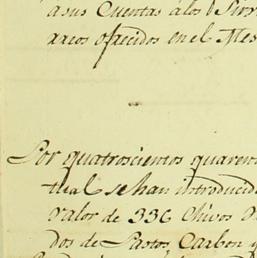 a sus Cuentas a los
ofrecidos en el Mes
Por quatroscientos quaren
se han introducid
valor de 336 Chivos
dos de Pastos Carbon